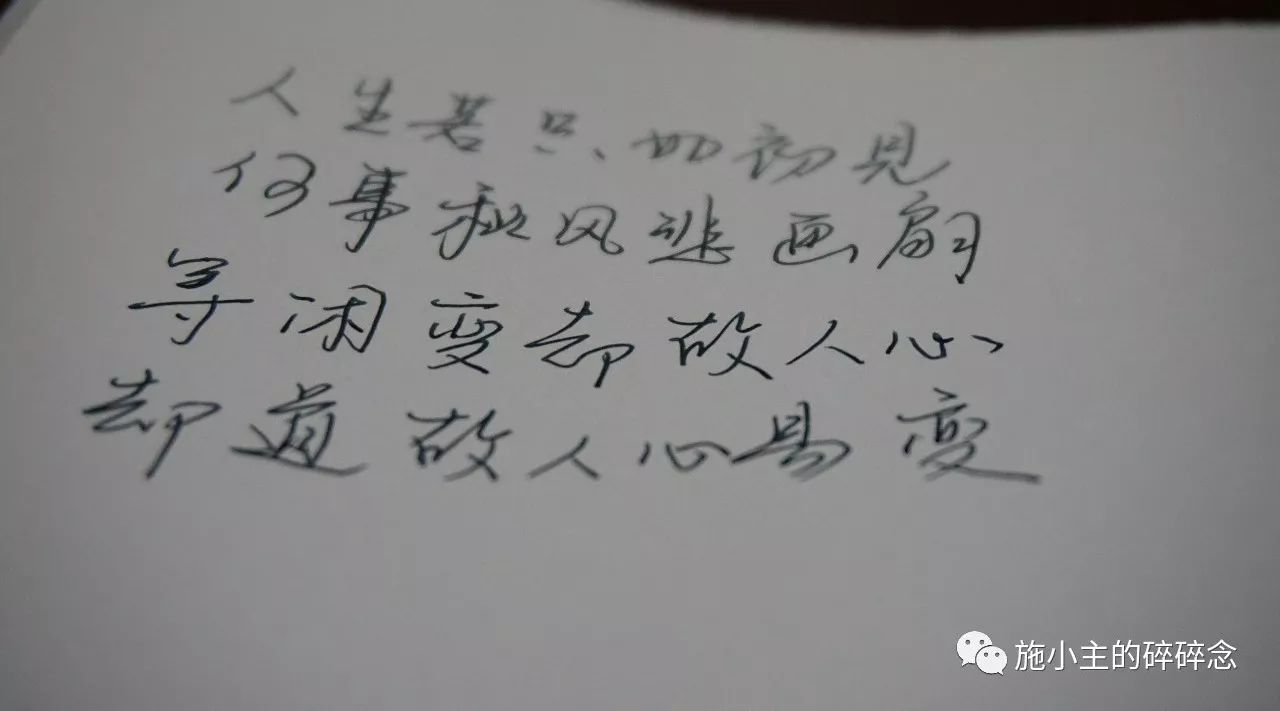 人生若只如初见
何事秋风悲画扇
等闲变却故人心
却道故人心易变
施小主的碎碎念